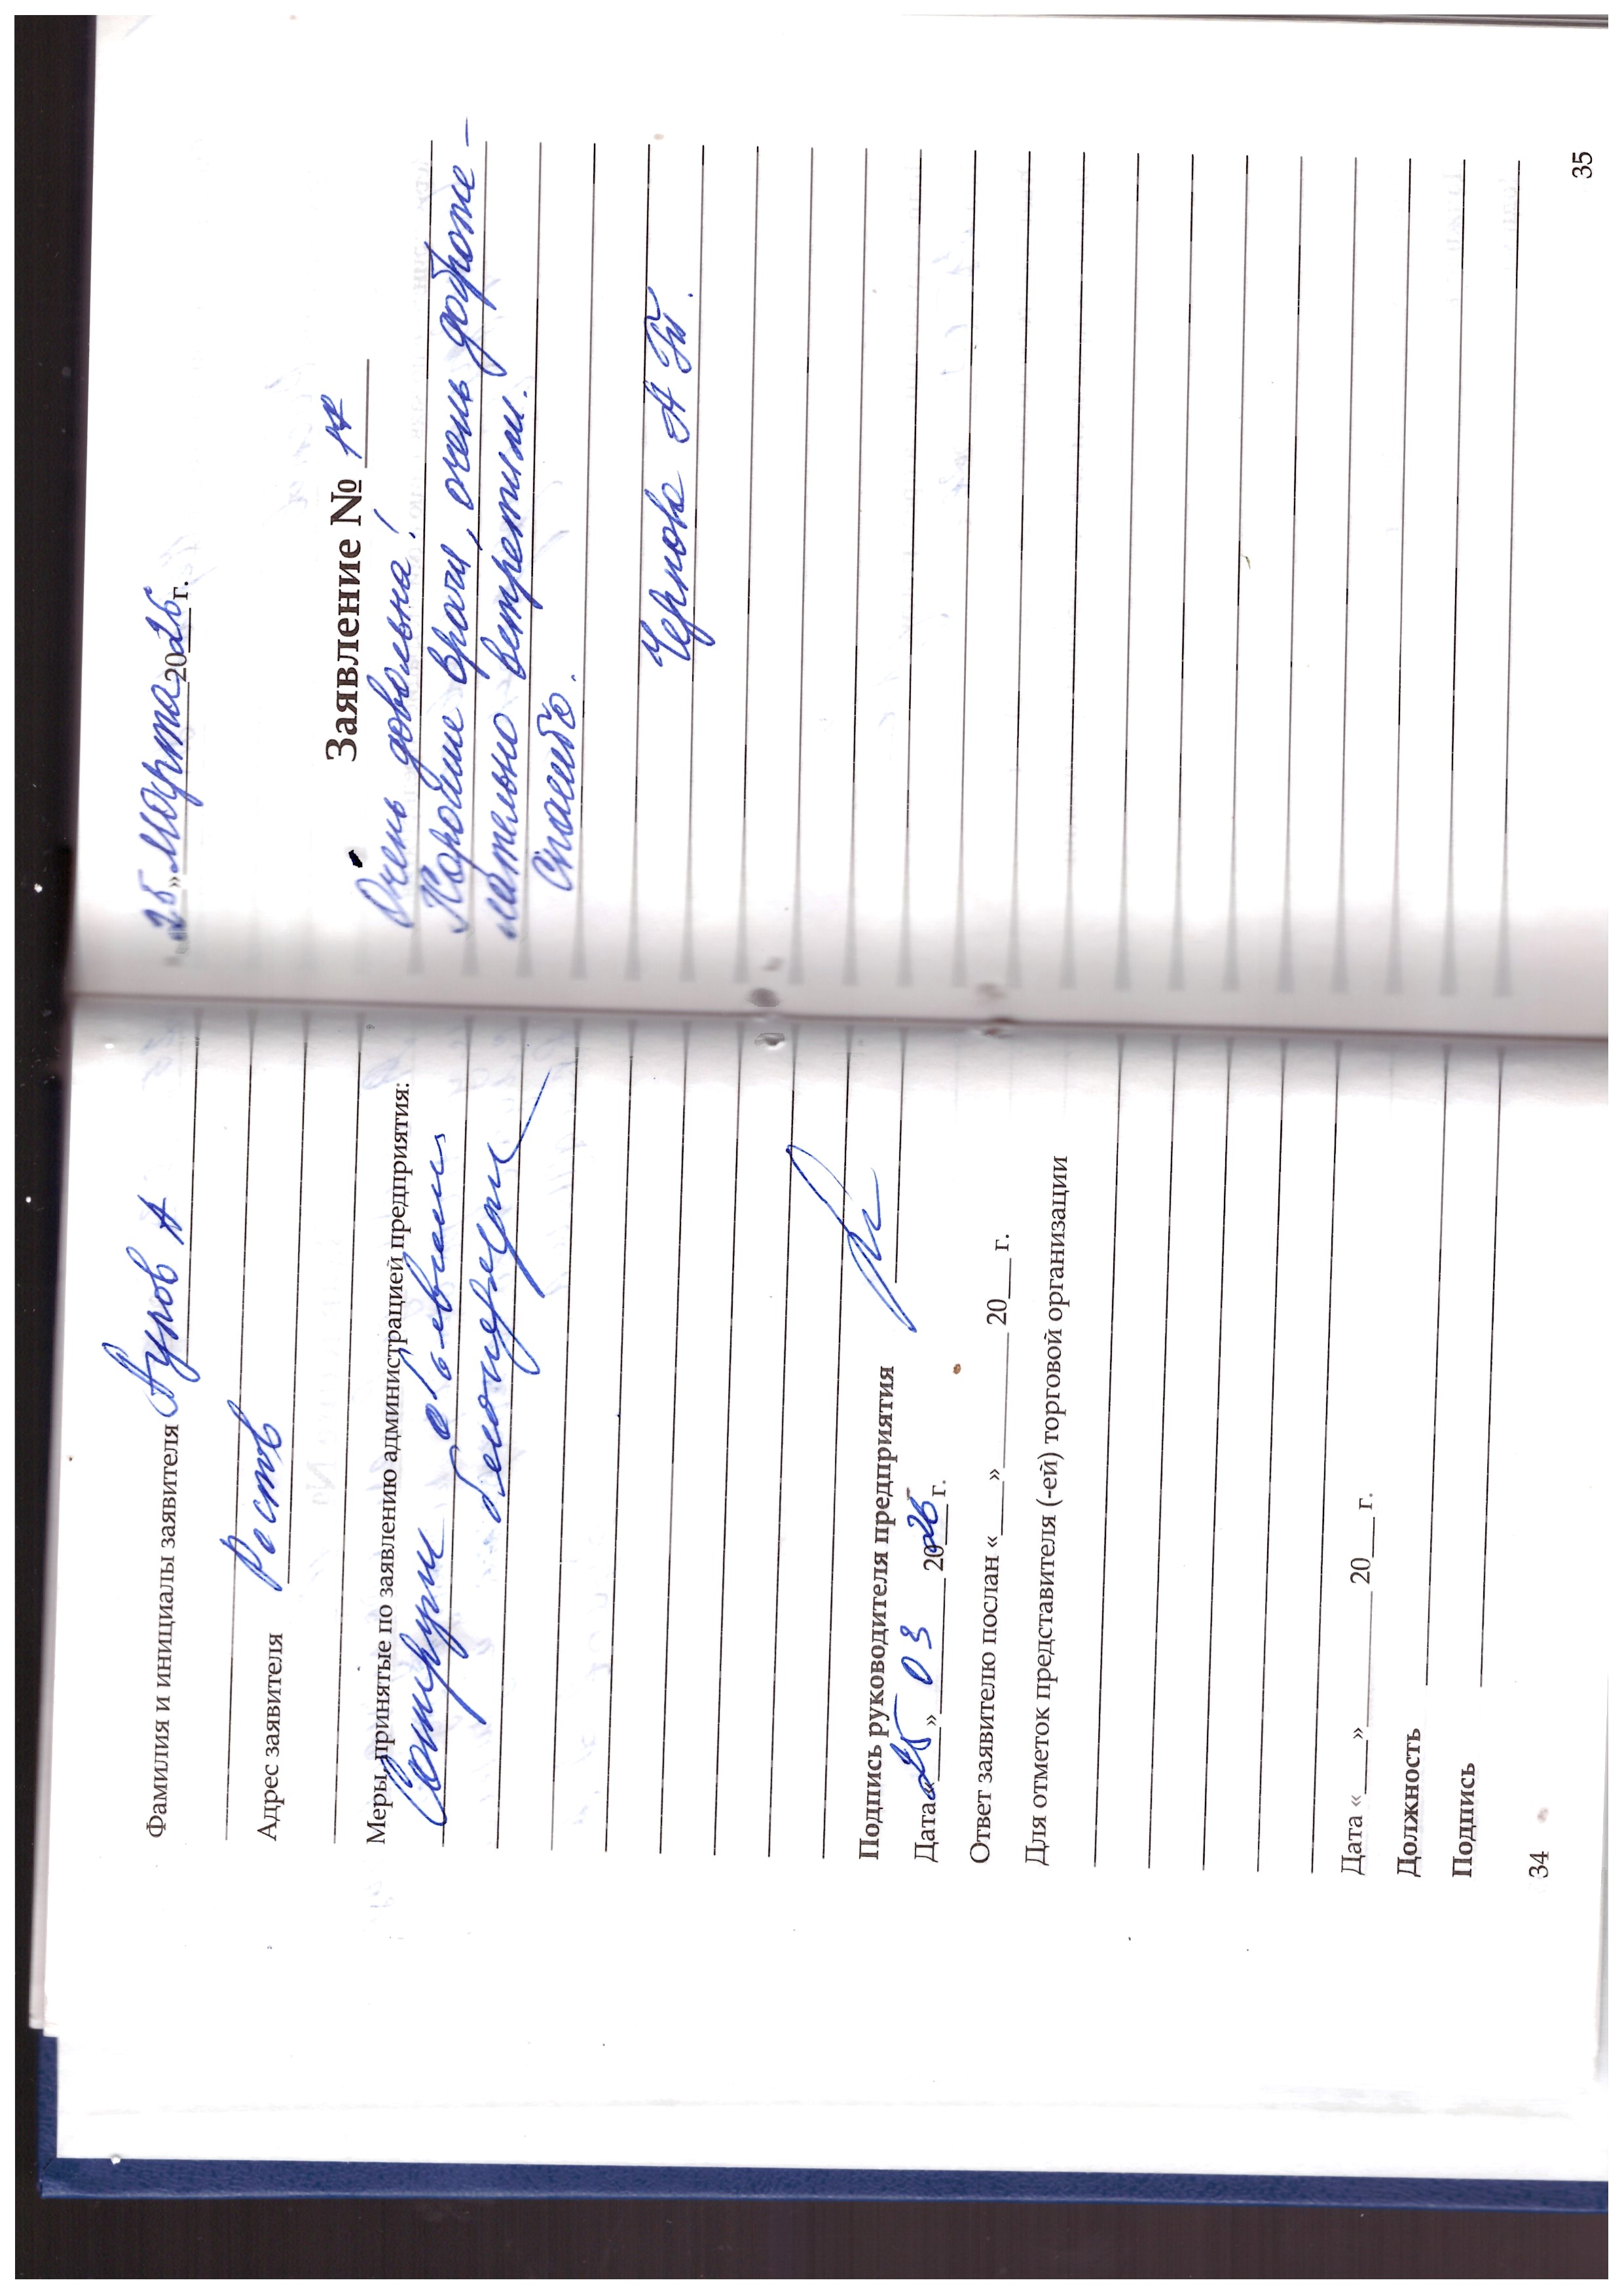 Фамилия и инициалы заявителя Аупов А
Адрес заявителя Ростов
Меры, принятые по заявлению администрацией предприятия:
Сотруднику объявлена
благодарность
Подпись руководителя предприятия
Дата «25» 03 2026 г.
Ответ заявителю послан «___» ________ 20___ г.
Для отметок представителя (-ей) торговой организации
Дата «___» ________ 20___ г.
Должность
Подпись
34
«25» Марта 2026 г.
Заявление №
Очень довольна!
Хорошие врачи, очень доброже-
лательно встретили.
Спасибо.
Чернова А
35